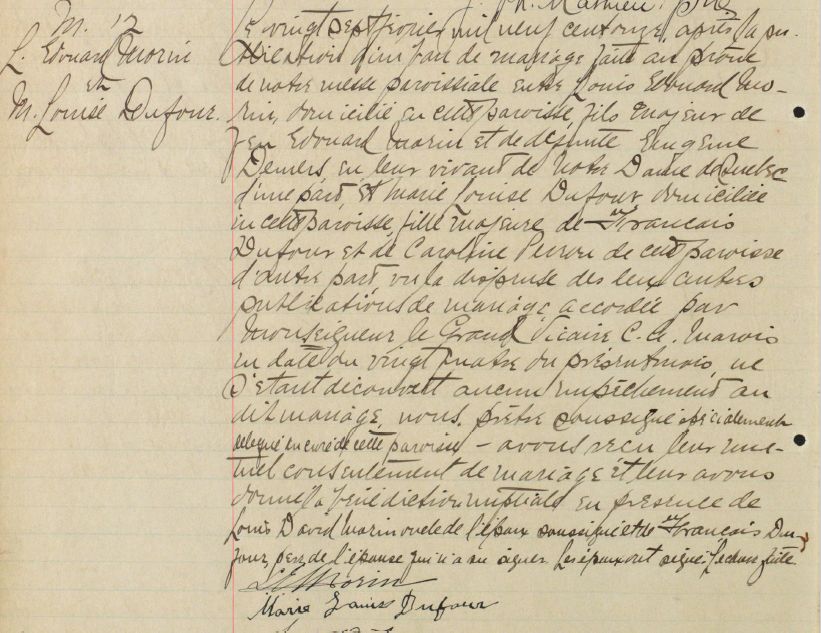 M. 12
L. Edouard Morin
et
M. Louise Dufour.
Ph. Mathieu. ptre
Le vingt sept février mil neuf cent onze, après la pu-
blication d'un ban de mariage fait au prône
de notre messe paroissiale entre Louis Edouard Mo-
rin, domicilié en cette paroisse, fils majeur de
feu Edouard Morin et de défunte Eugénie
Demers, en leur vivant de Notre Dame de Québec
d'une part, et Marie Louise Dufour domiciliée
en cette paroisse, fille majeure de François
Dufour et de Caroline Perron de cette paroisse
d'autre part, vu la dispense des deux autres
publications de mariage accordée par
Monseigneur le Grand Vicaire C. A. Marois
en date du vingt quatre du présent mois, ne
s'étant découvert aucun empêchement au
dit mariage, nous, prêtre soussigné spécialement
délégué en cure de cette paroisse - avons reçu leur mu-
tuel consentement de mariage et leur avons
donné la bénédiction nuptiale en présence de
Louis David Marin oncle de l'époux soussigné et de François Du-
four, père de l'épouse qui n'a su signer. Les époux ont signé. Lecture faite
L. E. Morin
Marie Louise Dufour